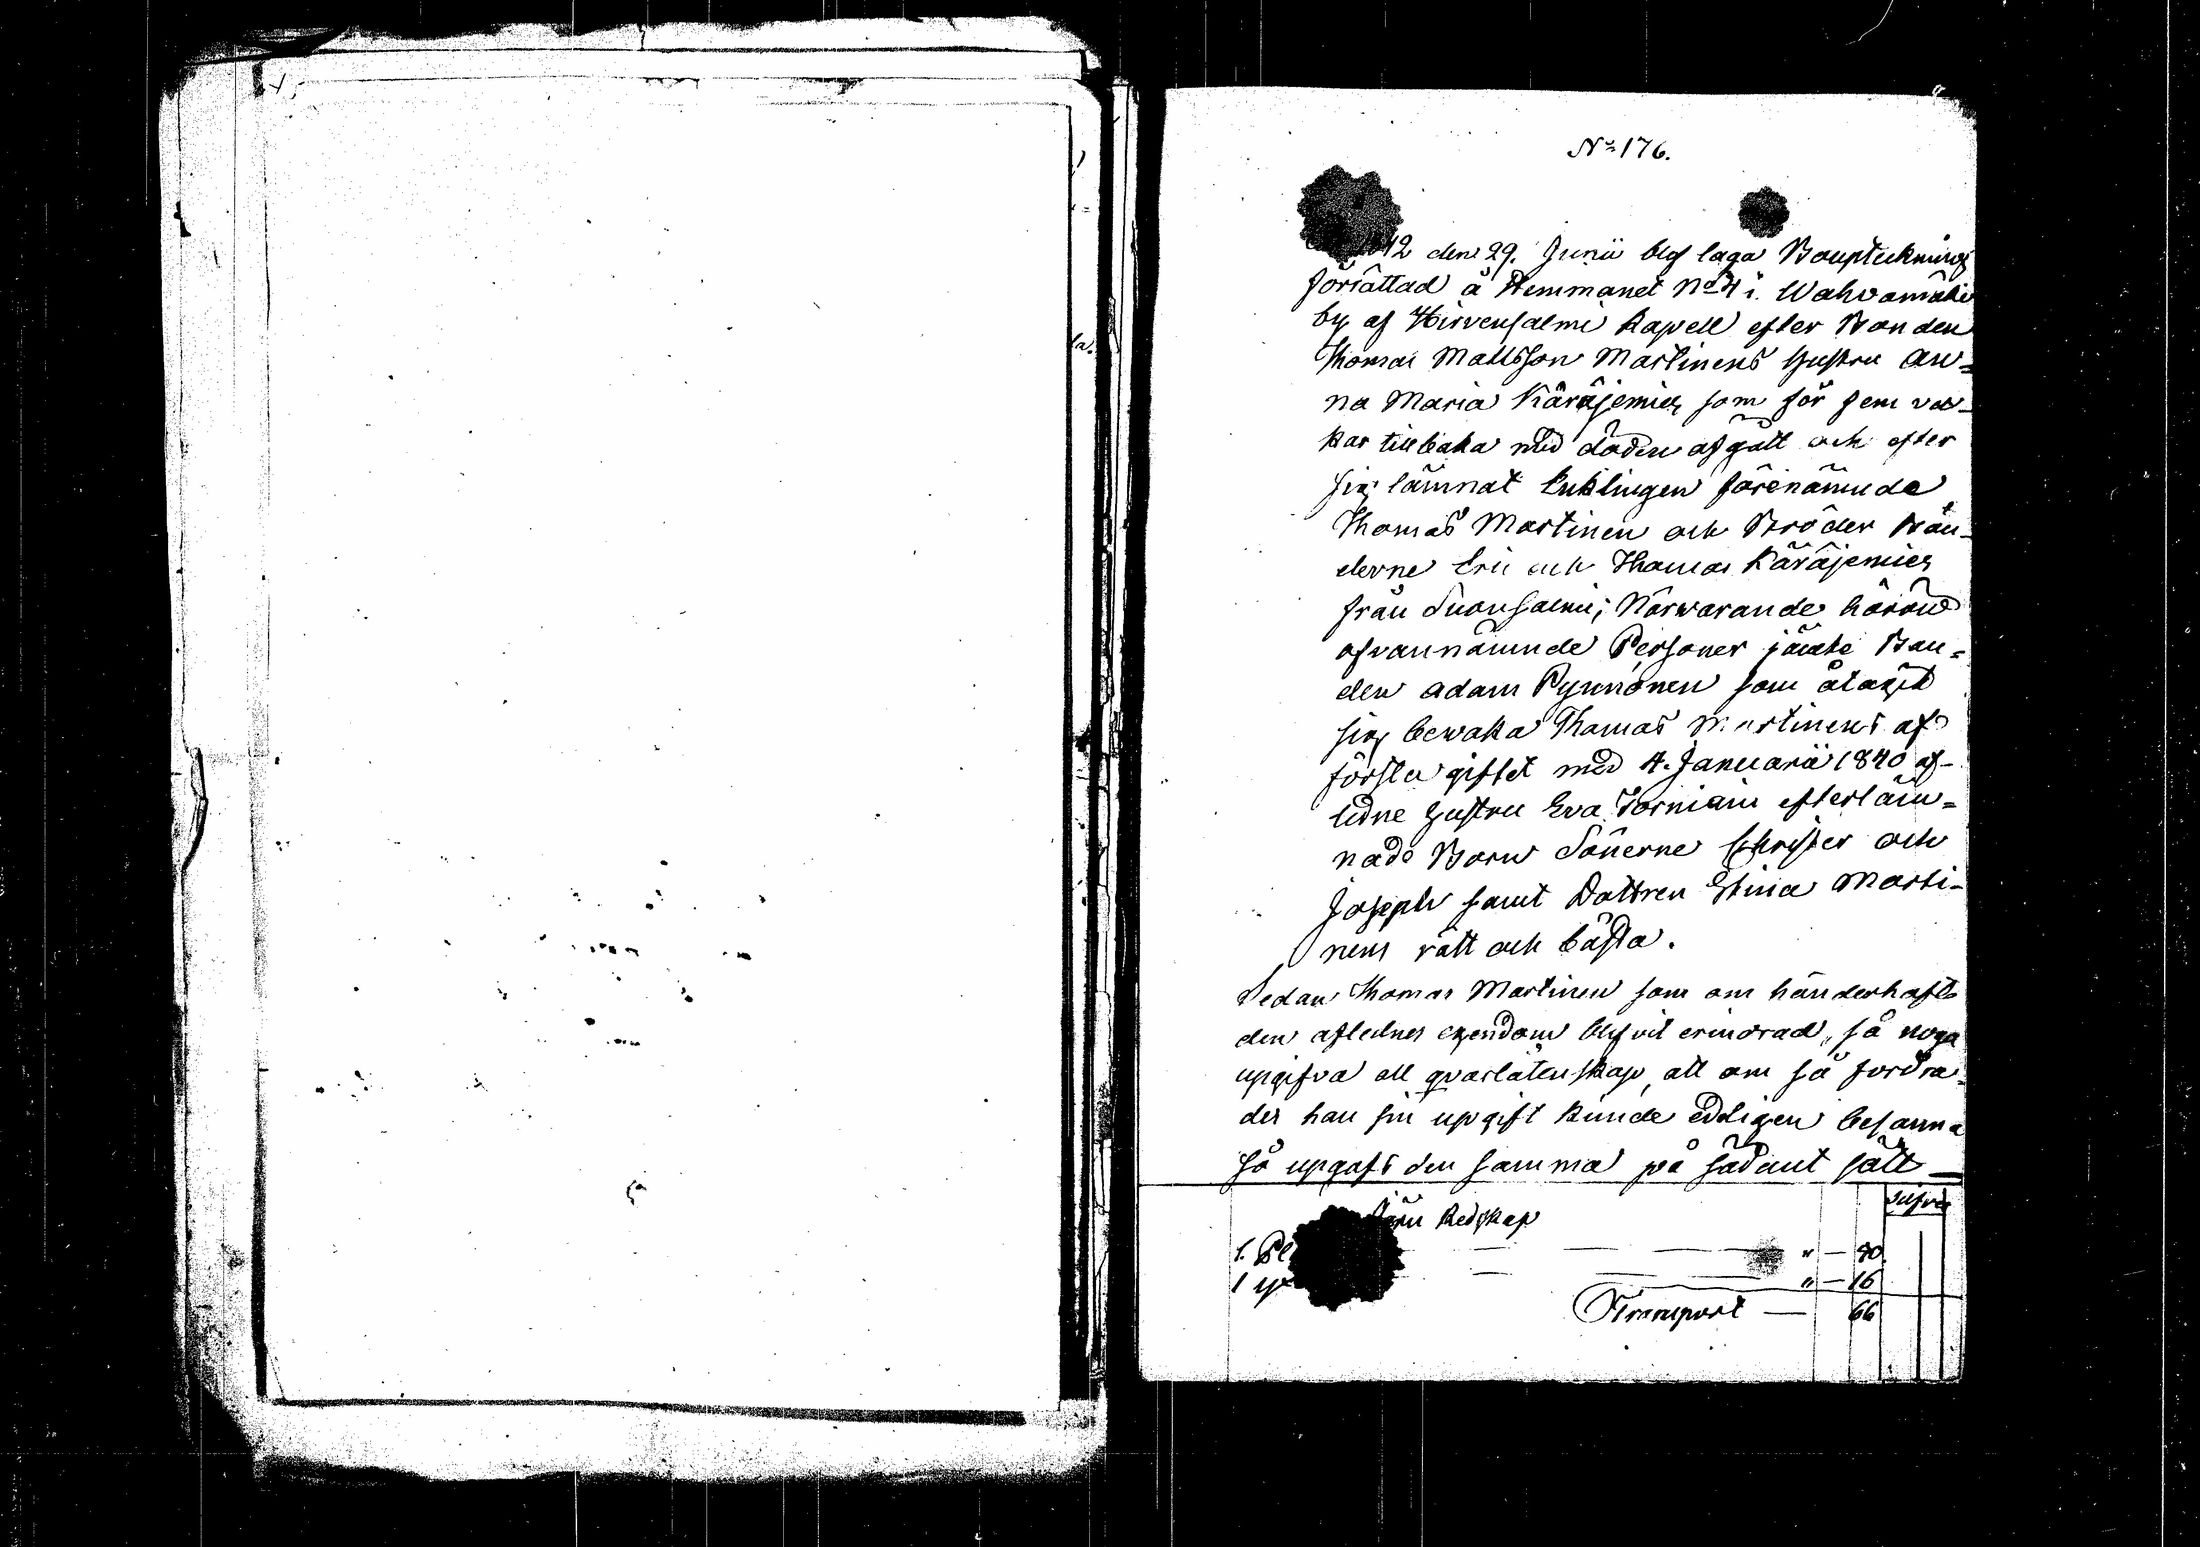 No 176.
1842 den 29. Junii blef laga Bouptekning
förrättad å Hemmanet No 4 i Wahvamäki
by af Hirvensalmi Kapell efter Bonden
Thomas Mattsson Martinens hustru An=
na Maria Käräjemies som för fem vec-
kor tillbaka med döden afgått och efter
sig lämnat Enklingen förenämnde
Thomas Martinen och Bröder Bön-
derne Eric och Thomas Käräjemies
från Suonsalmi; Närwarande härwid
ofvannämnde Personer jämte Bon=
den Adam Pynnönen som åtagit
sig bewaka Thomas Martinens af
första giftet med 4. Januarii 1840 af-
lidne hustru Eva Torniain efterläm=
nade Barn Sönerne Christer och
Joseph samt Dottren Stina Marti-
nens rätt och bästa.
Sedan Thomas Martinen som om händerhaft
den aflednes egendom blifvit erindrad, så noga
upgifva all qvarlåtenskap, att om så fordra-
des han sin upgift kunde edeligen besanna
så upgafs den samma på sådant sätt
Silfver
Järn Redskap
1. " — 50
1 " — 16
Transport — 66